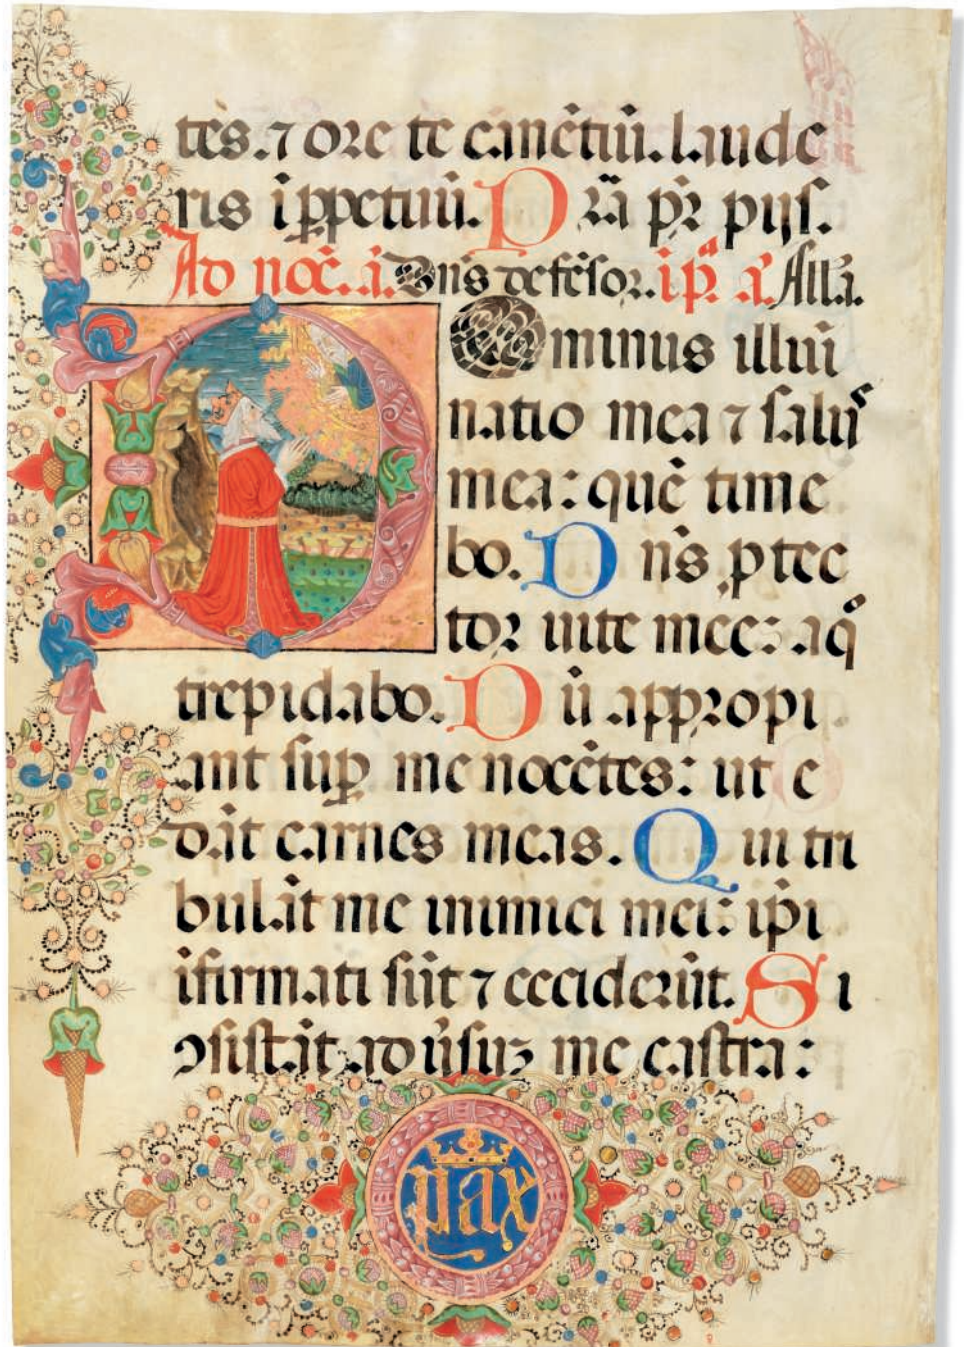 tes. ⁊ ore te canētiū. laude
ris i ppetuū. P rā pr̄ pijs.
Ad noc̄. a. Dn̄s defēsor. ip̄. a. All'a.
Dominus illuī
natio mea ⁊ salus
mea: quē time
bo. D n̄s ptec
tor uite mee: a q̊
trepidabo. D ū appropi
ant sup me nocētes: ut e
dāt carnes meas. Q ui tri
bulāt me inimici mei: ip̄i
ifirmati sūt ⁊ ceciderūt. S i
ꝯsistāt aduſuꝫ me castra:
pax